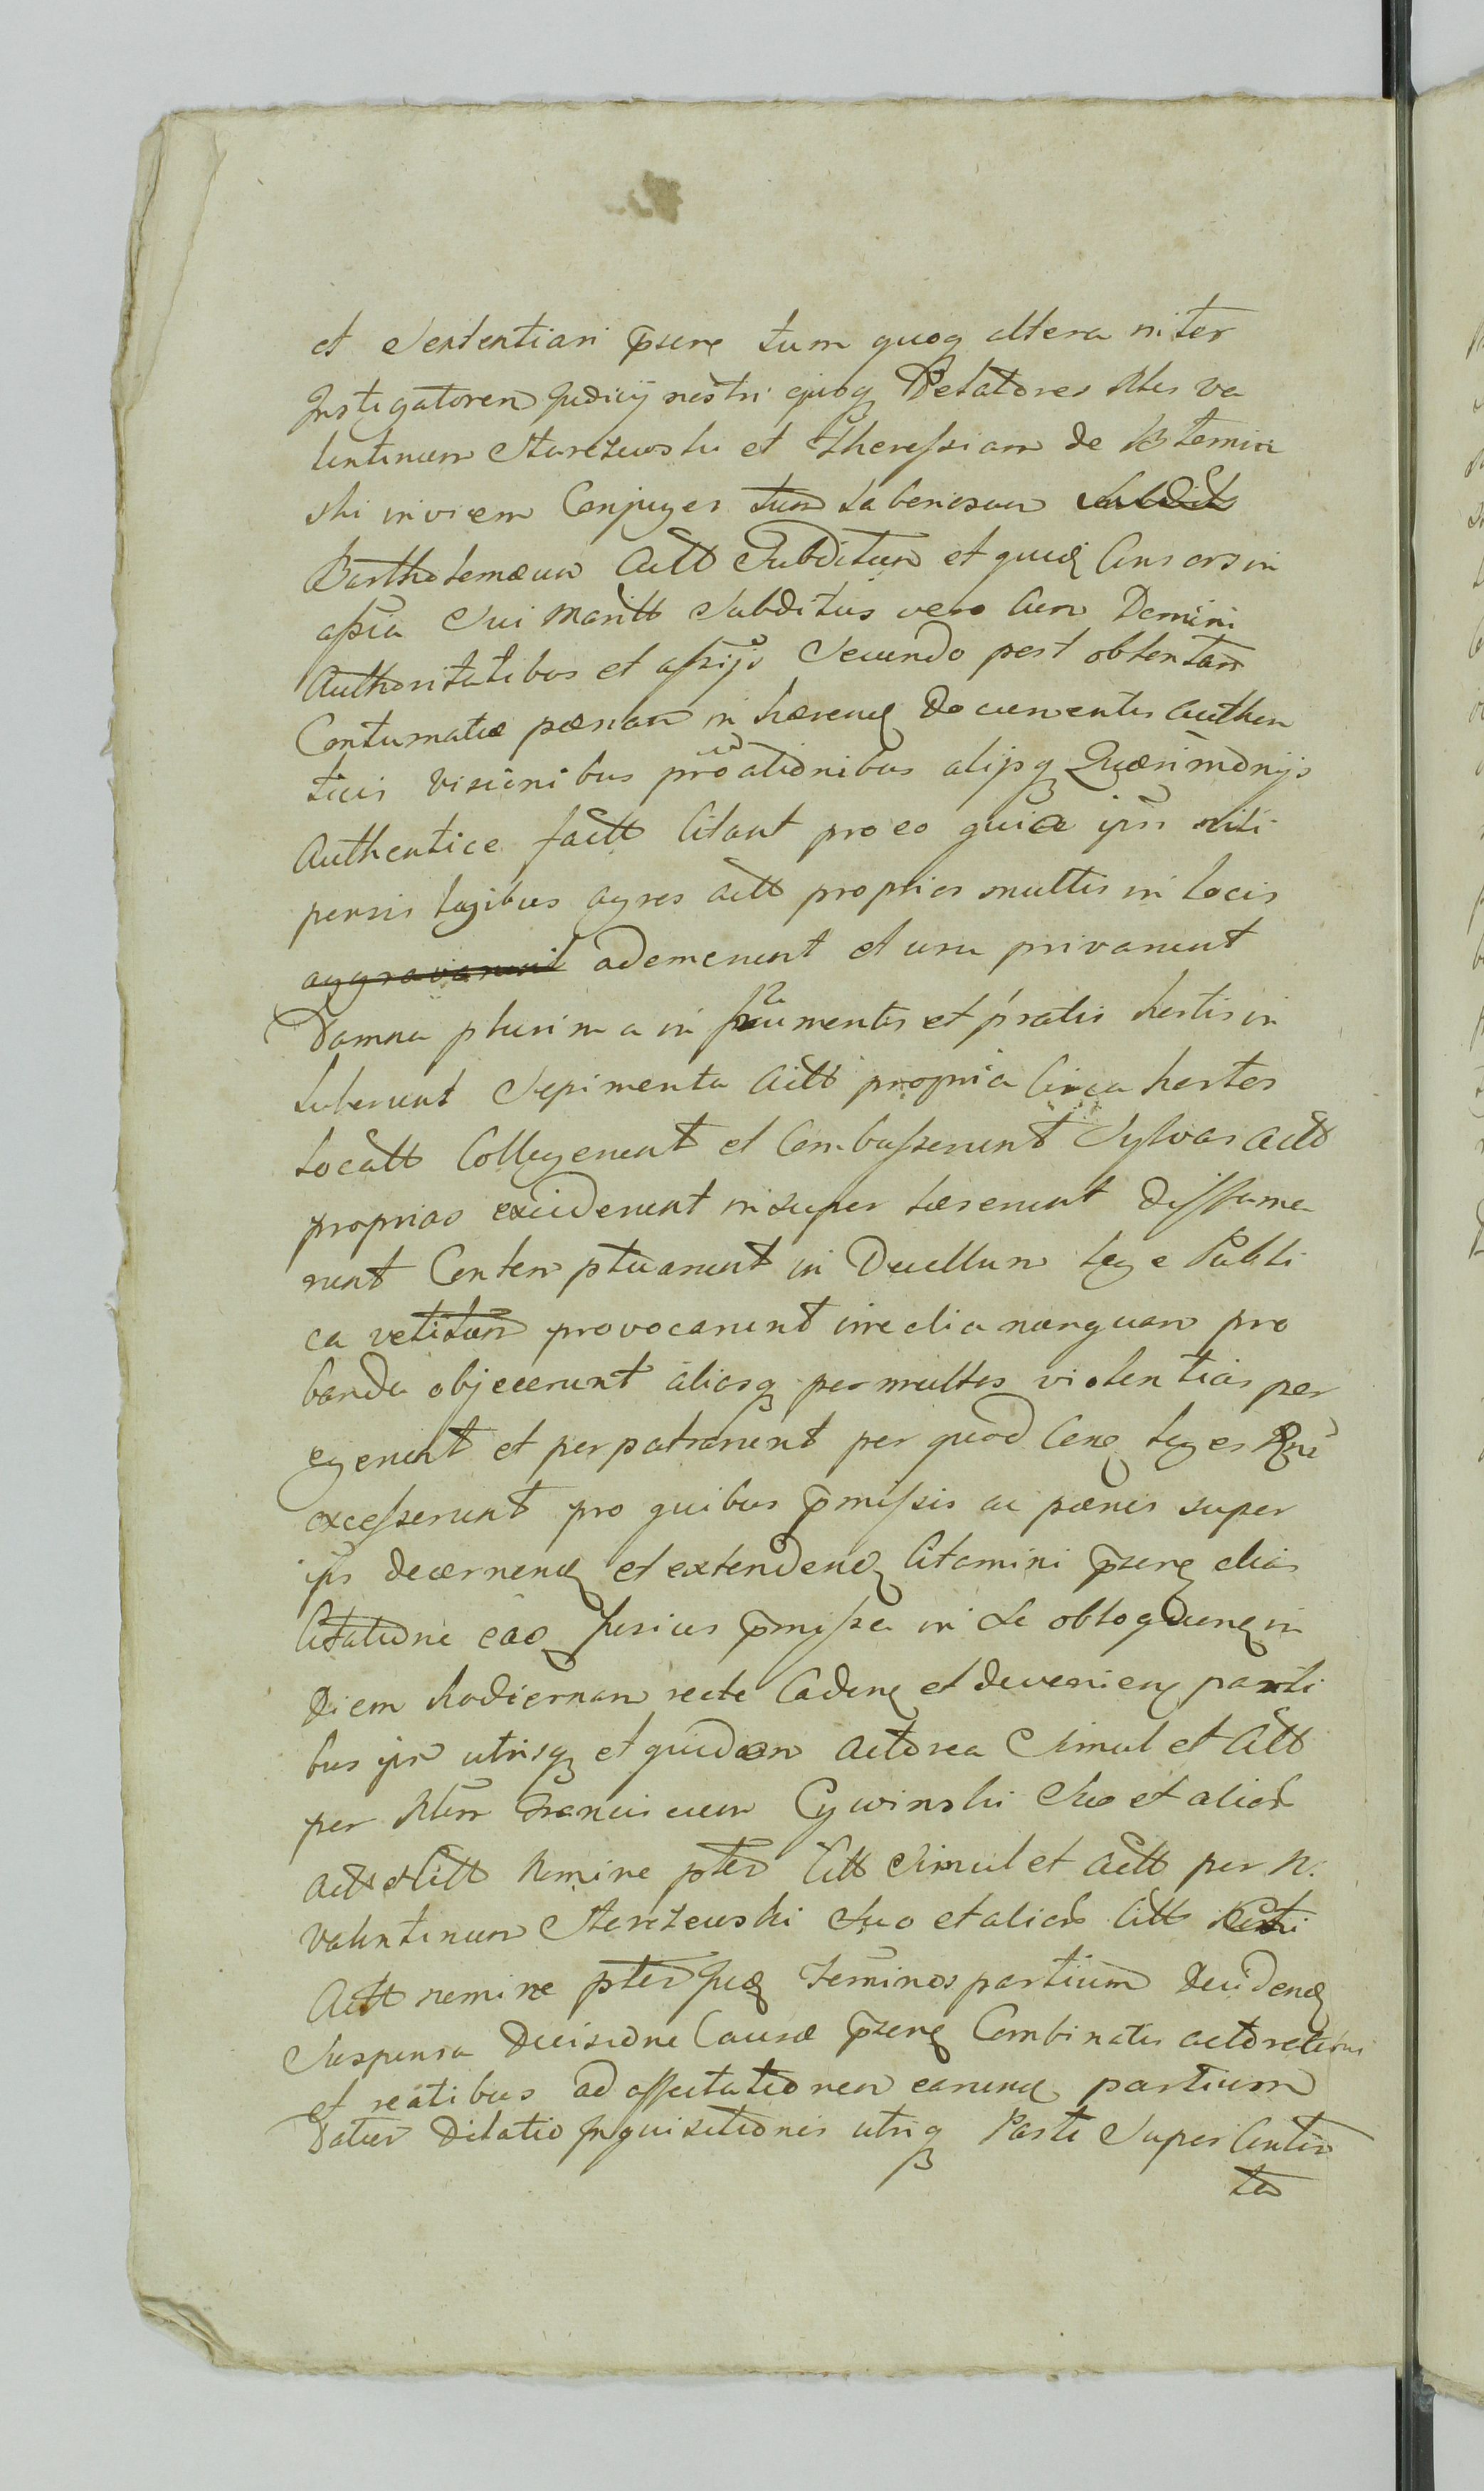 et Sententiari p̄sens tum quoq altera inter
Instigatorem Judicij nostri ejusq Delatores Nles Va
lentinum Starczewski et Theressiam de Słomin
ski invicem Conjuges tum laboriosum
Bartholomæum Actt Subditum et quid Consors in
assīa Sui Maritt Subditus vero Cum Domini
Authoritatibus et assijs Secundo post obtentam
Contumatiæ pænam inhæreng Documentis authen
ticis Visionibus pro ationibus alijsq Quærimonijs
Authentice factt Citant pro eo quia ipsi
pensis legibus agros actt proprios multis in locis
aggravarunt ademerunt et usu privarunt
Damna plurima in frumentis et pratis hortis in
tulerunt Sepimenta Actt propria Circa hortos
Locatt Collegerunt et Combusserunt Sylvas actt
proprias exciderunt insuper læserunt diffama
runt Contemptuarunt in Duellum lege Publi
ca vetitum provocarunt irredia nunquam pro
banda objecerunt aliasq permultas violentias per
egerunt et perpatrarunt per quod Cenq leges
excesserunt pro quibus p̄missis ac pænis super
ips decernend et extendend Citamini p̄senq alias
Citatione eaō fusius p̄missa in se obloquenq in
Diem hodiernam recte Cadenq et devenienq parti
bus ips utrisq et quidem Actorea Simul et Citt
per Nlem Franciscum Cywinski Suo et alior
Actt et Citt Nomine pter Citt Simul et Actt per N.
Valentinum Starczewski Suo et alior Citt
Actt nomine pter Jud Terminos partium Decidend
Suspensa Decisione Causæ p̄senq Combinatis actoratibus
et reatibus ad affectationem earund partium
Datur Dilatio Inquisitionis utriq Parti Super Conten
ta